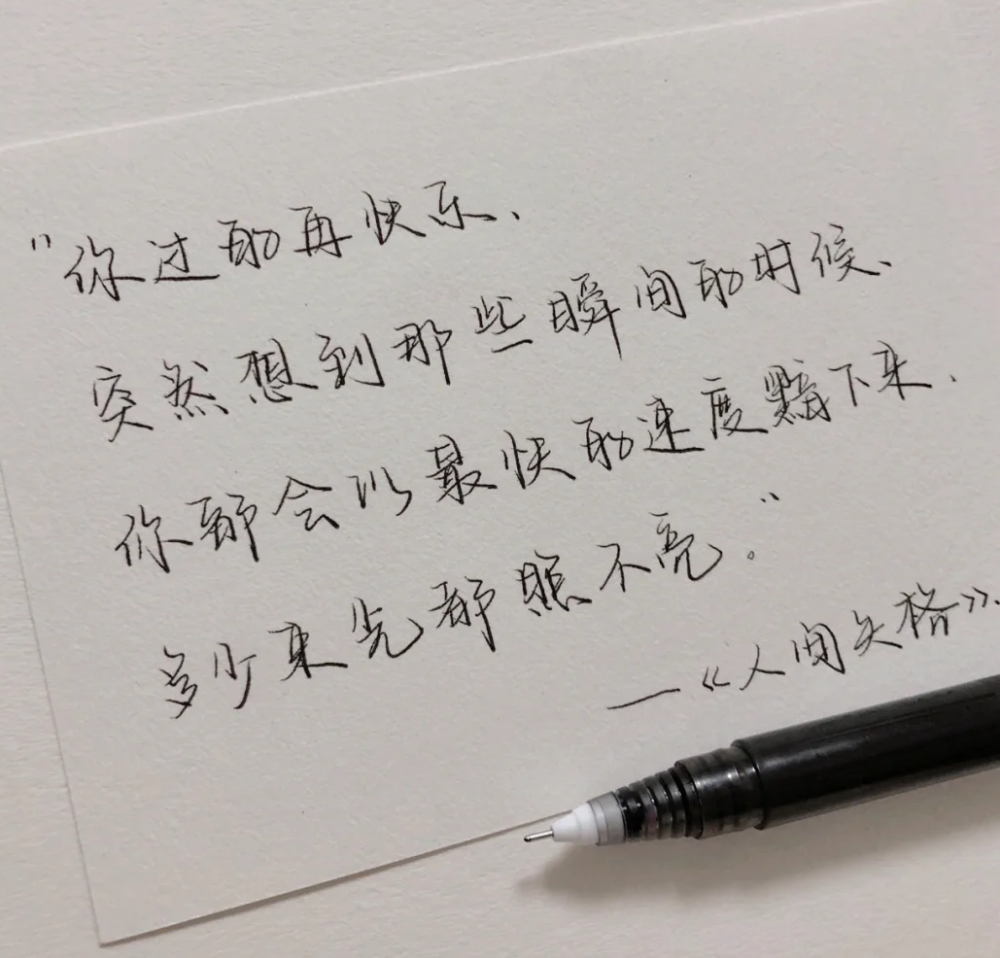 “你过的再快乐、
突然想到那些瞬间的时候、
你都会以最快的速度黯下来、
多少束光都照不亮。”
—《人间失格》.